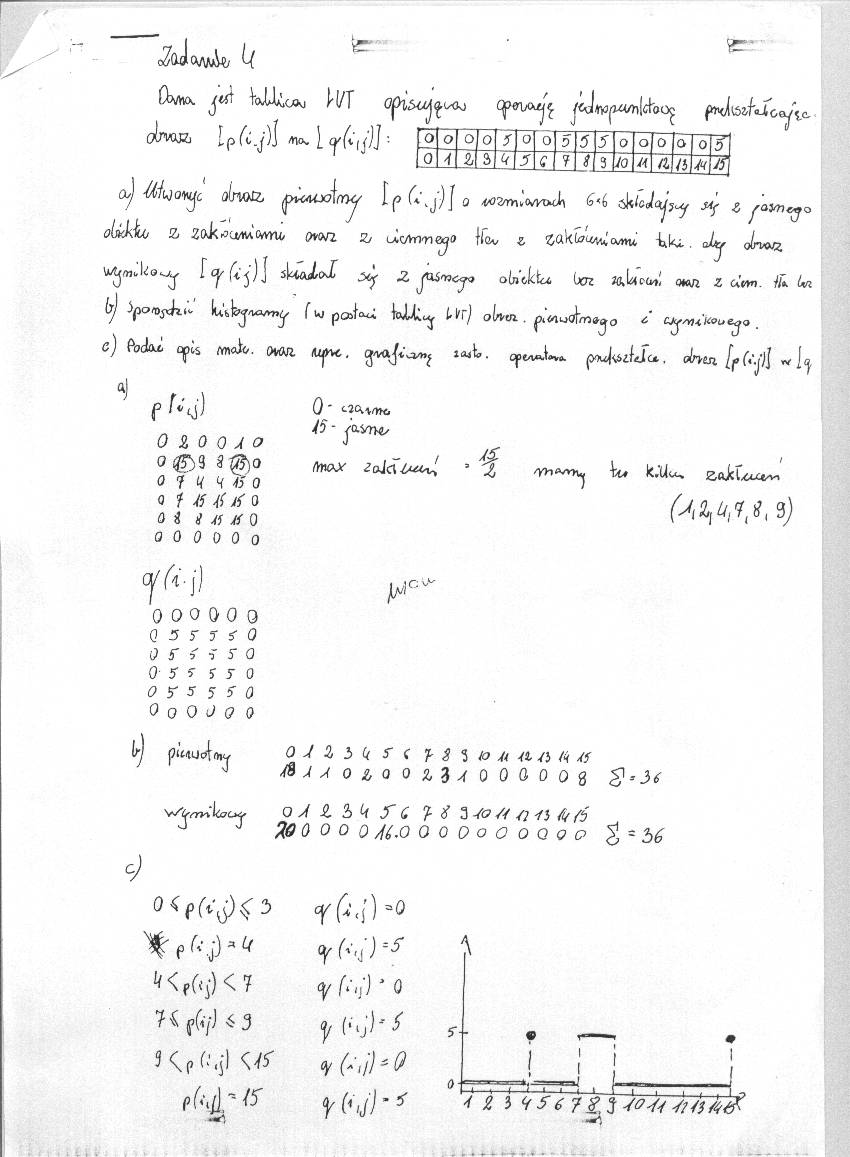 Zadanie 4
Dana jest tablica LUT opisująca operację jednopunktową przekształcając.
obraz [p(i,j)] na [q(i,j)]:
0 0 0 0 5 0 0 5 5 5 0 0 0 0 0 5
0 1 2 3 4 5 6 7 8 9 10 11 12 13 14 15
a) Utworzyć obraz pierwotny [p(i,j)] o rozmiarach 6×6 składający się z jasnego
obiektu z zakłóceniami oraz z ciemnego tła z zakłóceniami taki, aby obraz
wynikowy [q(i,j)] składał się z jasnego obiektu bez zakłóceń oraz z ciem. tła bez
b) Sporządzić histogramy (w postaci tablicy LUT) obraz. pierwotnego i wynikowego.
c) Podać opis mate. oraz repre. graficzną zasto. operatora przekształca. obraz [p(i,j)] w [q
a)
p(i,j)
0 2 0 0 1 0
0 15 9 8 15 0
0 7 4 4 15 0
0 7 15 15 15 0
0 8 8 15 15 0
0 0 0 0 0 0
0 - czarne
15 - jasne
max zakłuceń = 15/2 mamy tu kilka zakłuceń
(1,2,4,7,8,9)
q(i,j)
0 0 0 0 0 0
0 5 5 5 5 0
0 5 5 5 5 0
0 5 5 5 5 0
0 5 5 5 5 0
0 0 0 0 0 0
b) pierwotny 0 1 2 3 4 5 6 7 8 9 10 11 12 13 14 15
18 1 1 0 2 0 0 2 3 1 0 0 0 0 0 8 Σ = 36
wynikowy 0 1 2 3 4 5 6 7 8 9 10 11 12 13 14 15
20 0 0 0 0 16 0 0 0 0 0 0 0 0 0 0 Σ = 36
c)
0 ≤ p(i,j) ≤ 3 q(i,j) = 0
p(i,j) = 4 q(i,j) = 5
4 < p(i,j) < 7 q(i,j) = 0
7 ≤ p(i,j) ≤ 9 q(i,j) = 5
9 < p(i,j) < 15 q(i,j) = 0
p(i,j) = 15 q(i,j) = 5
5
0
1 2 3 4 5 6 7 8 9 10 11 12 13 14 15